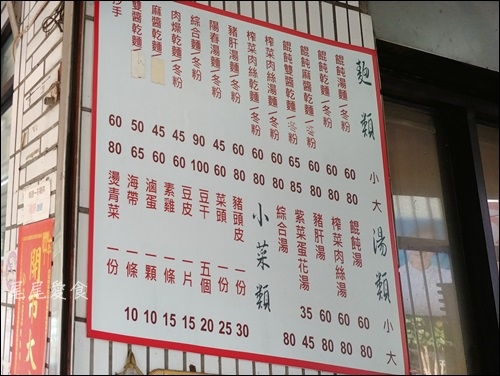 麵類 小 大
餛飩湯麵/冬粉 60 80
餛飩乾麵/冬粉 60 80
餛飩麻醬乾麵/冬粉 60 80
餛飩雙醬乾麵/冬粉 65 85
榨菜肉絲湯麵/冬粉 60 80
榨菜肉絲乾麵/冬粉 60 80
豬肝湯麵/冬粉 60 80
陽春湯麵/冬粉 45 60
綜合麵/冬粉 90 100
肉燥乾麵/冬粉 45 60
麻醬乾麵/冬粉 45 60
雙醬乾麵 50 65
抄手 60 80
湯類 小 大
餛飩湯 60 80
榨菜肉絲湯 60 80
豬肝湯 60 80
紫菜蛋花湯 35 45
綜合湯 80
小菜類
豬頭皮 一份 30
菜頭 一份 25
豆干 五個 20
豆皮 一片 15
素雞 一條 15
滷蛋 一顆 10
海帶 一條 10
燙青菜 一份
尾尾愛食